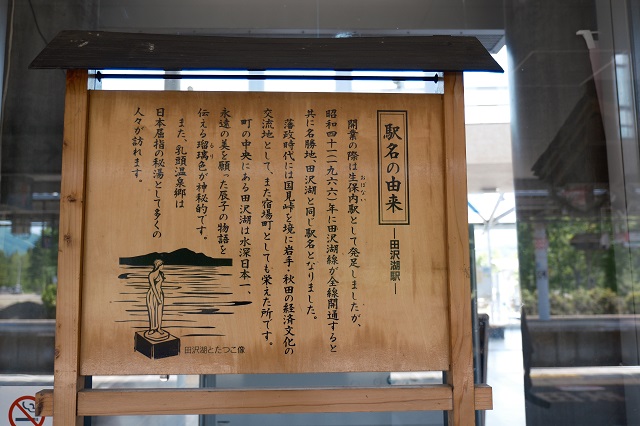 駅名の由来
―田沢湖駅―
開業の際は生保内駅として発足しましたが、
おぼない
昭和四十一(一九六六)年に田沢湖線が全線開通すると
共に名勝地、田沢湖と同じ駅名となりました。
藩政時代には国見峠を境に岩手・秋田の経済文化の
交流地として、また宿場町としても栄えた所です。
町の中央にある田沢湖は水深日本一、
永遠の美を願った辰子の物語と
伝える瑠璃色が神秘的です。
るり
また、乳頭温泉郷は
日本屈指の秘湯として多くの
人々が訪れます。
田沢湖とたつこ像